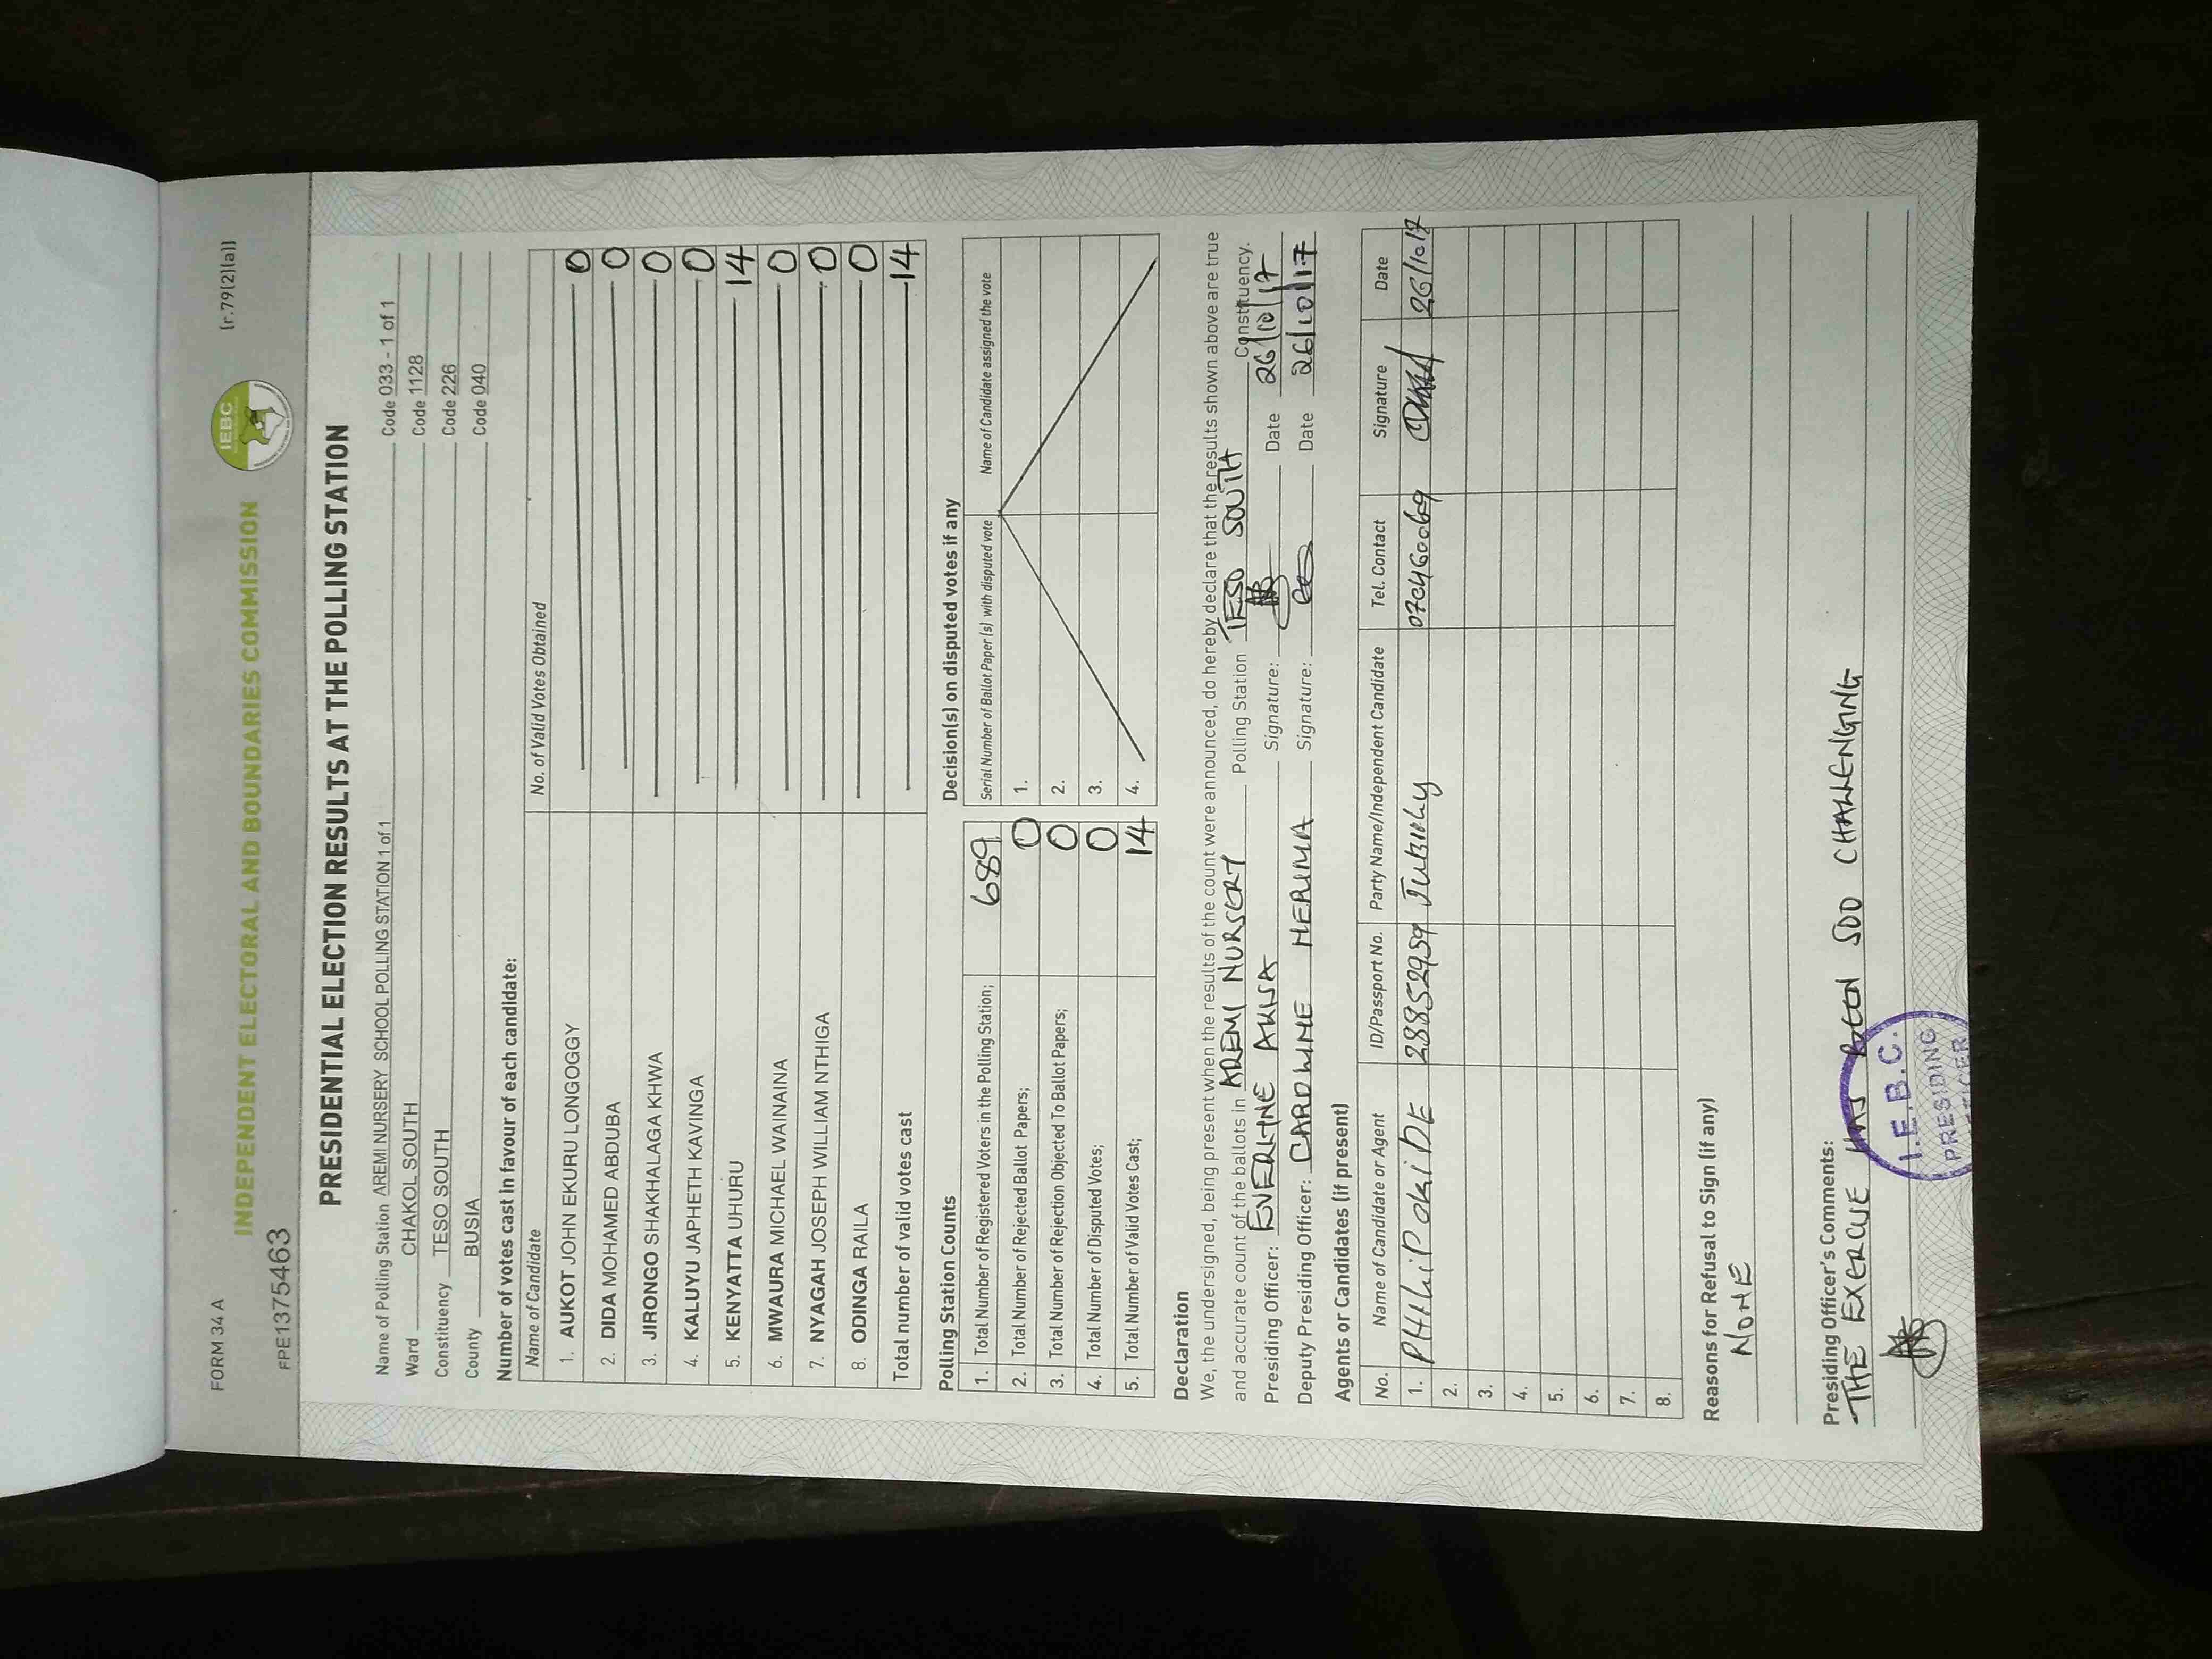 FORM 34 A
(r.79(2)(a))
IEBC
INDEPENDENT ELECTORAL AND BOUNDARIES COMMISSION
FPE1375463
PRESIDENTIAL ELECTION RESULTS AT THE POLLING STATION
Name of Polling Station AREMI NURSERY SCHOOL POLLING STATION 1 of 1 Code 033 - 1 of 1
Ward CHAKOL SOUTH Code 1128
Constituency TESO SOUTH Code 226
County BUSIA Code 040
Number of votes cast in favour of each candidate:
Name of Candidate No. of Valid Votes Obtained
1. AUKOT JOHN EKURU LONGOGGY 0
2. DIDA MOHAMED ABDUBA 0
3. JIRONGO SHAKHALAGA KHWA 0
4. KALUYU JAPHETH KAVINGA 0
5. KENYATTA UHURU 14
6. MWAURA MICHAEL WAINAINA 0
7. NYAGAH JOSEPH WILLIAM NTHIGA 0
8. ODINGA RAILA 0
Total number of valid votes cast 14
Polling Station Counts
1. Total Number of Registered Voters in the Polling Station; 689
2. Total Number of Rejected Ballot Papers; 0
3. Total Number of Rejection Objected To Ballot Papers; 0
4. Total Number of Disputed Votes; 0
5. Total Number of Valid Votes Cast; 14
Decision(s) on disputed votes if any
Serial Number of Ballot Paper (s) with disputed vote Name of Candidate assigned the vote
1.
2.
3.
4.
Declaration
We, the undersigned, being present when the results of the count were announced, do hereby declare that the results shown above are true
and accurate count of the ballots in AREMI NURSERY Polling Station TESO SOUTH Constituency.
Presiding Officer: EVERLINE AKISA Signature: Date 26/10/17
Deputy Presiding Officer: CAROLINE NERIMA Signature: Date 26/10/17
Agents or Candidates (if present)
No. Name of Candidate or Agent ID/Passport No. Party Name/Independent Candidate Tel. Contact Signature Date
1. PHILIP OKIIDE 28852959 Jubilee 26/10/17
2.
3.
4.
5.
6.
7.
8.
Reasons for Refusal to Sign (if any)
NONE
Presiding Officer's Comments:
THE EXERCISE HAS BEEN SOO CHALLENGING
I.E.B.C.
PRESIDING
OFFICER